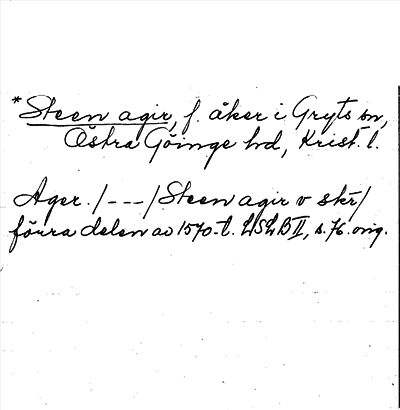 *Steen agir, f. åker i Gryts sn,
Östra Göinge hd, Krist. l.
Ager. /---/ Steen agir v skr/
förra delen av 1570-t. LSLB II, s. 76. orig.